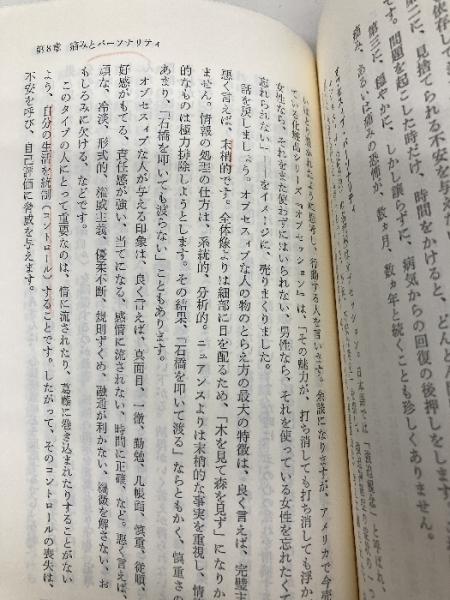 依存しても
に、見捨てられる不安を与えた
す。問題を起こした時だけ、時間をかけると、どんど
第三に、穏やかに、しかし譲らずに、病気からの回復の後押しをします。
痛み、あるいは痛みの恐怖が、数ヵ月、数ヵ年と続くことも珍しくありません。
第8章 痛みとパーソナリティ
行動する人を言います。余談になりますが、アメリカで今売
いている化粧品シリーズ『オブセッション』は、「その魅力が、打ち消しても打ち消しても浮か
女性なら、それをまた使わずにはいられない、男性なら、それを使っている女性を忘れたくて
忘れられない」――をイメージに、売りまくりました。
話を戻しましょう。オブセスィブな人の物のとらえ方の最大の特徴は、良く言えば、完璧主
悪く言えば、末梢的です。全体像よりは細部に目を配るため、「木を見て森を見ず」になりか
ません。情報の処理の仕方は、系統的、分析的。ニュアンスよりは末梢的な事実を重視し、情
的なものは極力排除しようとします。その結果、「石橋を叩いて渡る」ならともかく、慎重さの
あまり、「石橋を叩いても渡らない」こともあります。
オブセスィブな人が与える印象は、良く言えば、真面目、一徹、勤勉、几帳面、慎重、従順、
好感がもてる、責任感が強い、当てになる、感情に流されない、時間に正確、など。悪く言えば、
頑な、冷淡、形式的、権威主義、優柔不断、規則ずくめ、融通が利かない、機微を解さない、お
もしろみに欠ける、などです。
このタイプの人にとって重要なのは、情に流されたり、葛藤に巻き込まれたりすることがない
よう、自分の生活を統制(コントロール)することです。したがって、そのコントロールの喪失は、
不安を呼び、自己評価に脅威を与えます。